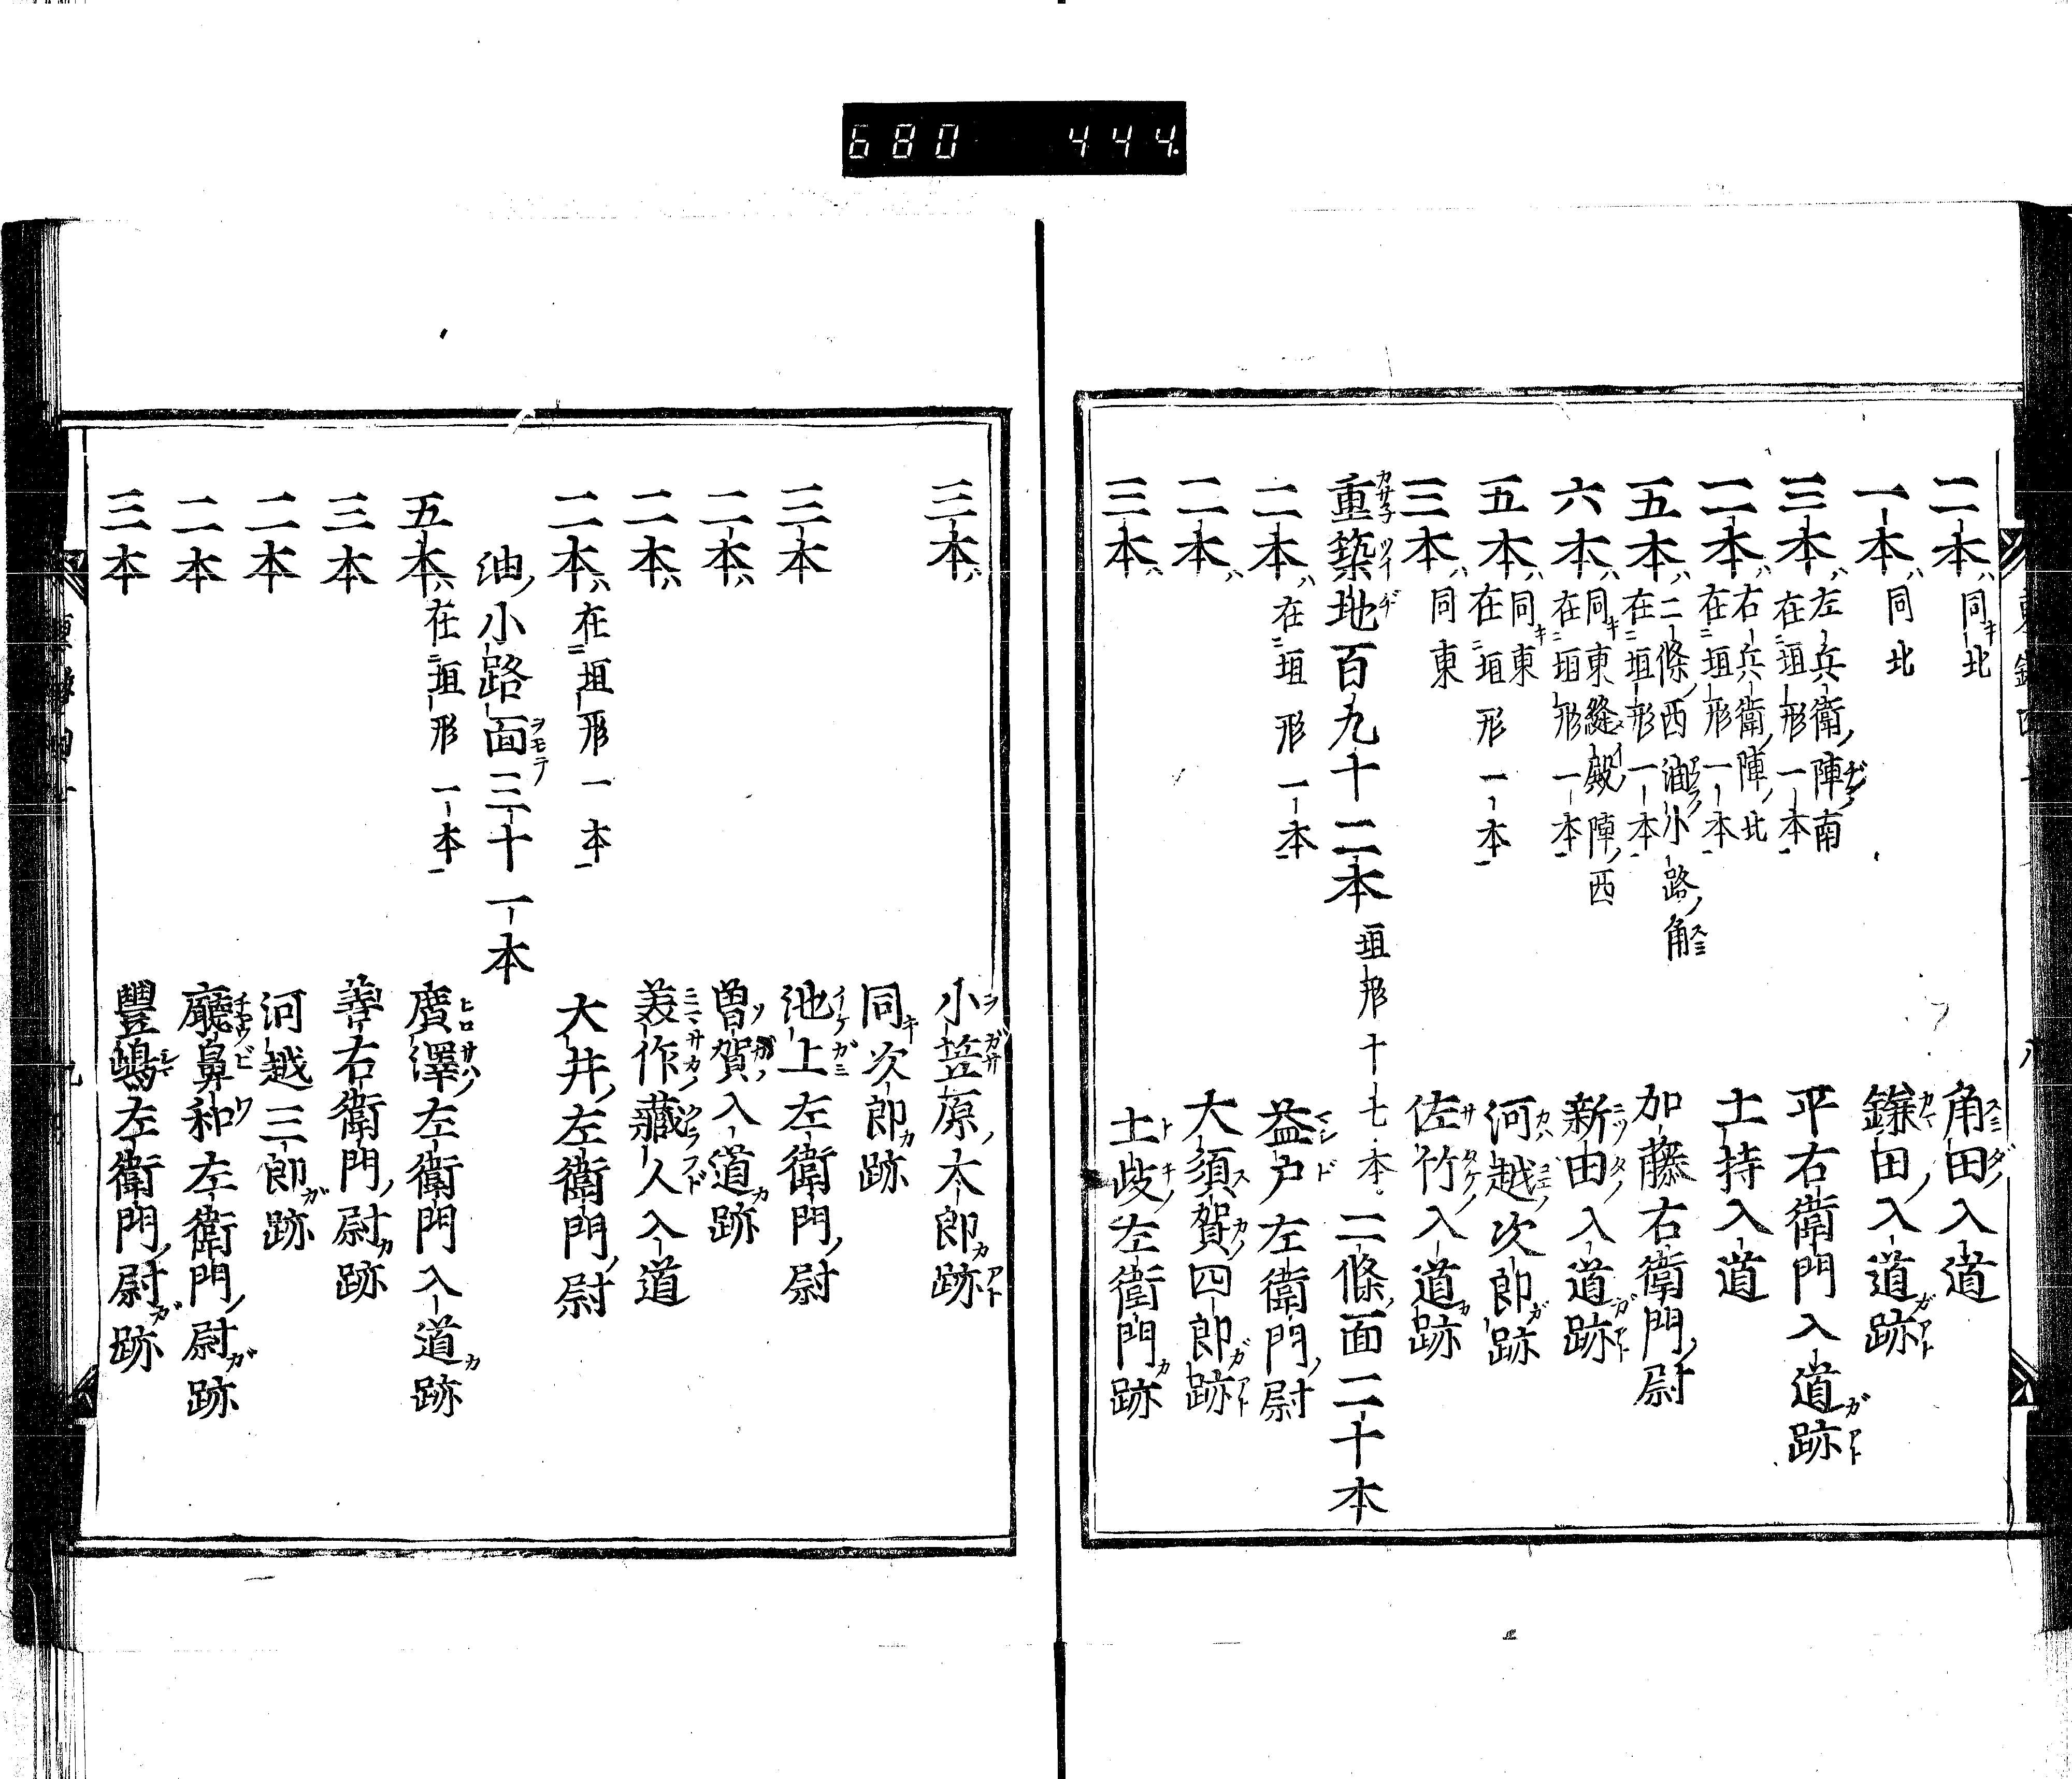 680 444.
二本ハ同キ北 角田ノ入道
一本ハ同北 鎌田ノ入道ガ跡
三本ハ左兵衛ノ陣ノ南在垣形一本 平右衛門入道ガ跡
二本ハ右兵衛ノ陣ノ北在垣形一本 土持入道
五本ハ二條ノ西油小路ノ角在垣形一本 加藤右衛門ノ尉
六本ハ同キ東縫殿陣ノ西在垣形一本 新田ノ入道ガ跡
五本ハ同キ東在垣形一本 河越ノ次郎ガ跡
三本ハ同東 佐竹ノ入道カ跡
重築地百九十二本垣形十七本 二條面二十本
二本ハ在垣形一本 益戸左衛門ノ尉
二本ハ 大須賀ノ四郎ガ跡
三本ハ 土岐ノ左衛門カ跡
三本ハ 小笠原ノ太郎カ跡
同キ次郎カ跡
三本 池上左衛門ノ尉
二本ハ 曽賀ノ入道カ跡
二本ハ 美作ノ蔵人入道
二本ハ在垣形一本 大井ノ左衛門ノ尉
油ノ小路面三十一本
五本ハ在垣形一本 廣澤ノ左衛門入道カ跡
三本 善右衛門ノ尉カ跡
二本 河越三郎ガ跡
二本 廳鼻和左衛門ノ尉ガ跡
三本 豐嶋左衛門ノ尉ガ跡